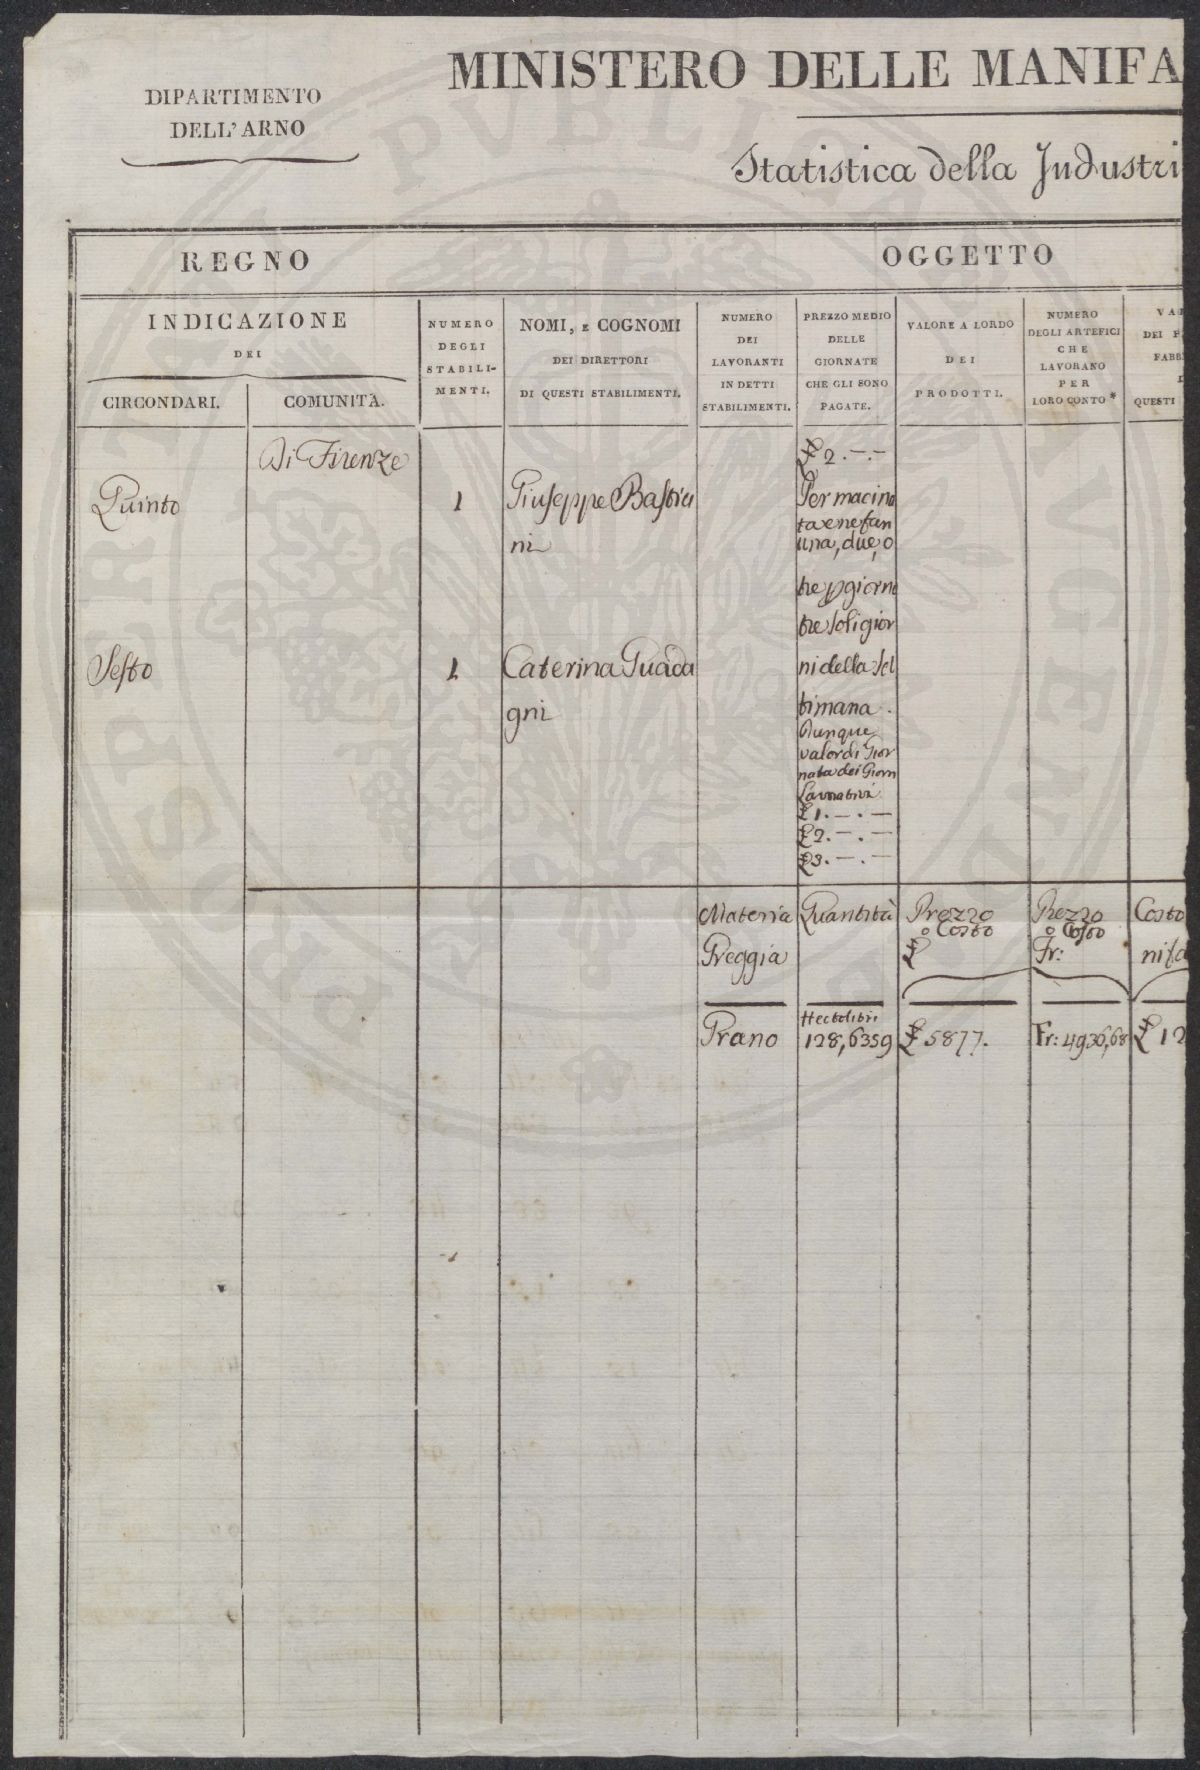 MINISTERO DELLE MANIFA
DIPARTIMENTO
DELL'ARNO
Statistica della Industri
REGNO
OGGETTO
INDICAZIONE
DEI
CIRCONDARI.
COMUNITÀ.
NUMERO
DEGLI
STABILI-
MENTI.
NOMI, E COGNOMI
DEI DIRETTORI
DI QUESTI STABILIMENTI.
NUMERO
DEI
LAVORANTI
IN DETTI
STABILIMENTI.
PREZZO MEDIO
DELLE
GIORNATE
CHE GLI SONO
PAGATE.
VALORE A LORDO
DEI
PRODOTTI.
NUMERO
DEGLI ARTEFICI
CHE
LAVORANO
PER
LORO CONTO *
VA
DEI P
FABB
QUESTI
Di Firenze
Quinto
1
Giuseppe Bastia
ni
Sesto
1
Caterina Guada
gni
£ 2.-.-
Per macina
ta e ne fan
una, due, o
tre p giorno
tre soli gior
ni della set
timana.
Dunque
valor di Gior
nata dei Giorn
Lavorativi
£ 1.-.-
£ 2.-.-
£ 3.-.-
Materia
Greggia
Quantità
Prezzo
o Costo
£
Prezzo
o Costo
Fr:
Costo
nifa
Grano
Hectolitri
128,6359
£ 5877.
Fr: 4936,68
£ 12